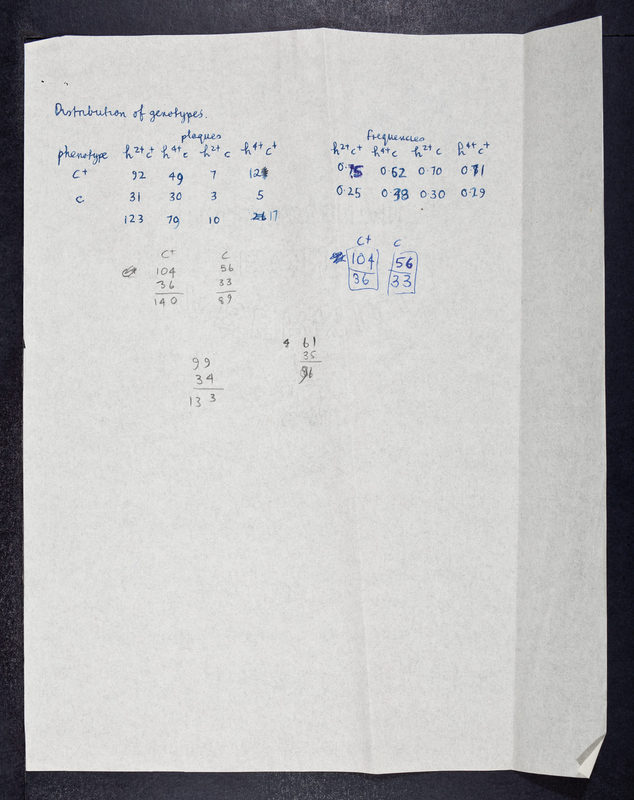 Distribution of genotypes.
plaques frequencies
phenotype h2+c+ h4+c h2+c h4+c+ h2+c+ h4+c h2+c h4+c+
c+ 92 49 7 12 0.75 0.62 0.70 0.71
c 31 30 3 5 0.25 0.38 0.30 0.29
123 79 10 17
c+ c c+ c
104 56 104 56
36 33 36 33
140 89
61
99 35
34 96
133